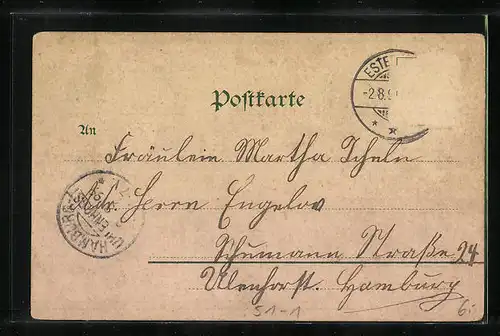 ESTE
-2.8.9
Postkarte
An
Fräulein Martha Scheln
Herrn Engelov
Schumann Straße 24
Uhlenhorst. Hamburg
HAMBURG
UHLENHORST
51-1
6: